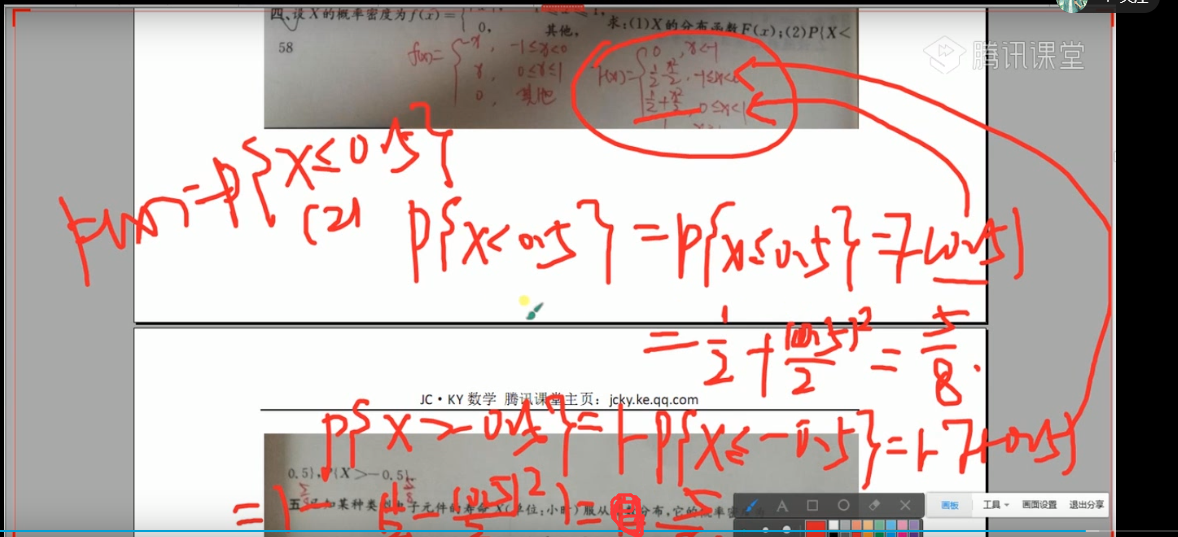 四、设X的概率密度为f(x)=
0, 其他,
求:(1)X的分布函数F(x);(2)P{X<
58
f(x)= -x, -1≤x<0
x, 0≤x≤1
0, 其他
F(x)= 0, x<-1
1/2 - x²/2, -1≤x<0
1/2 + x²/2, 0≤x<1
腾讯课堂
F(x)=P{X≤0.5}
(2) P{X<0.5}=P{X≤0.5}=F(0.5)
= 1/2 + (0.5)²/2 = 5/8.
JC·KY 数学 腾讯课堂主页：jcky.ke.qq.com
P{X>-0.5}=1-P{X≤-0.5}=1-F(-0.5)
0.5},P{X>-0.5}.
五、已知某种类型电子元件的寿命X(单位:小时)服从指数分布,它的概率密度
画板 工具 画面设置 退出分享